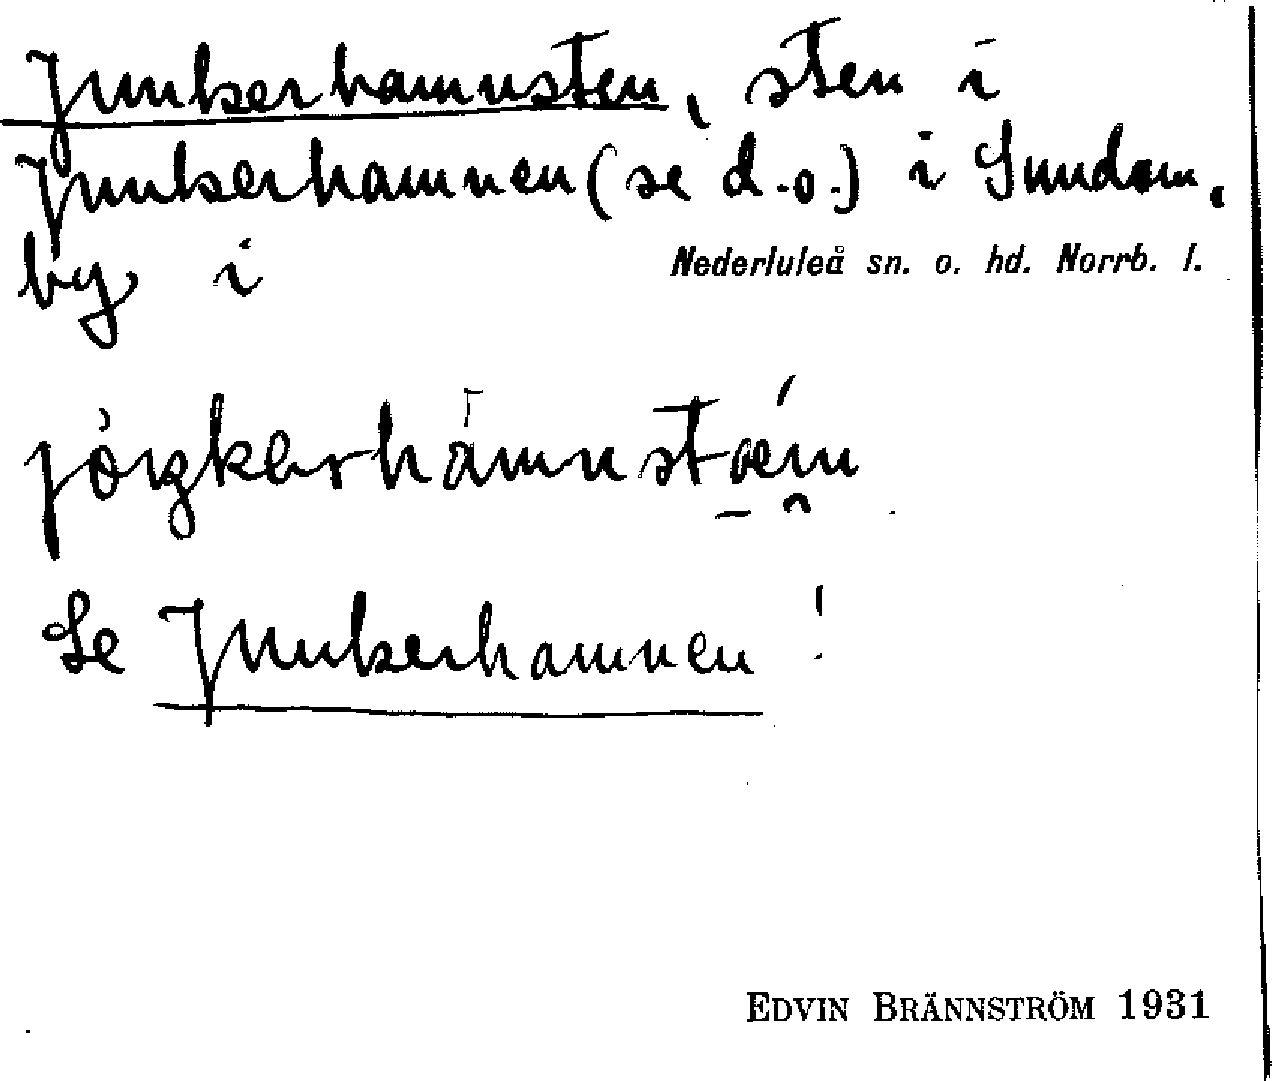 Junkerhamnsten, sten i
Junkerhamnen (se d.o.) i Sundom,
by i Nederluleå sn. o. hd. Norrb. l.
Se Junkerhamnen!
EDVIN BRÄNNSTRÖM 1931